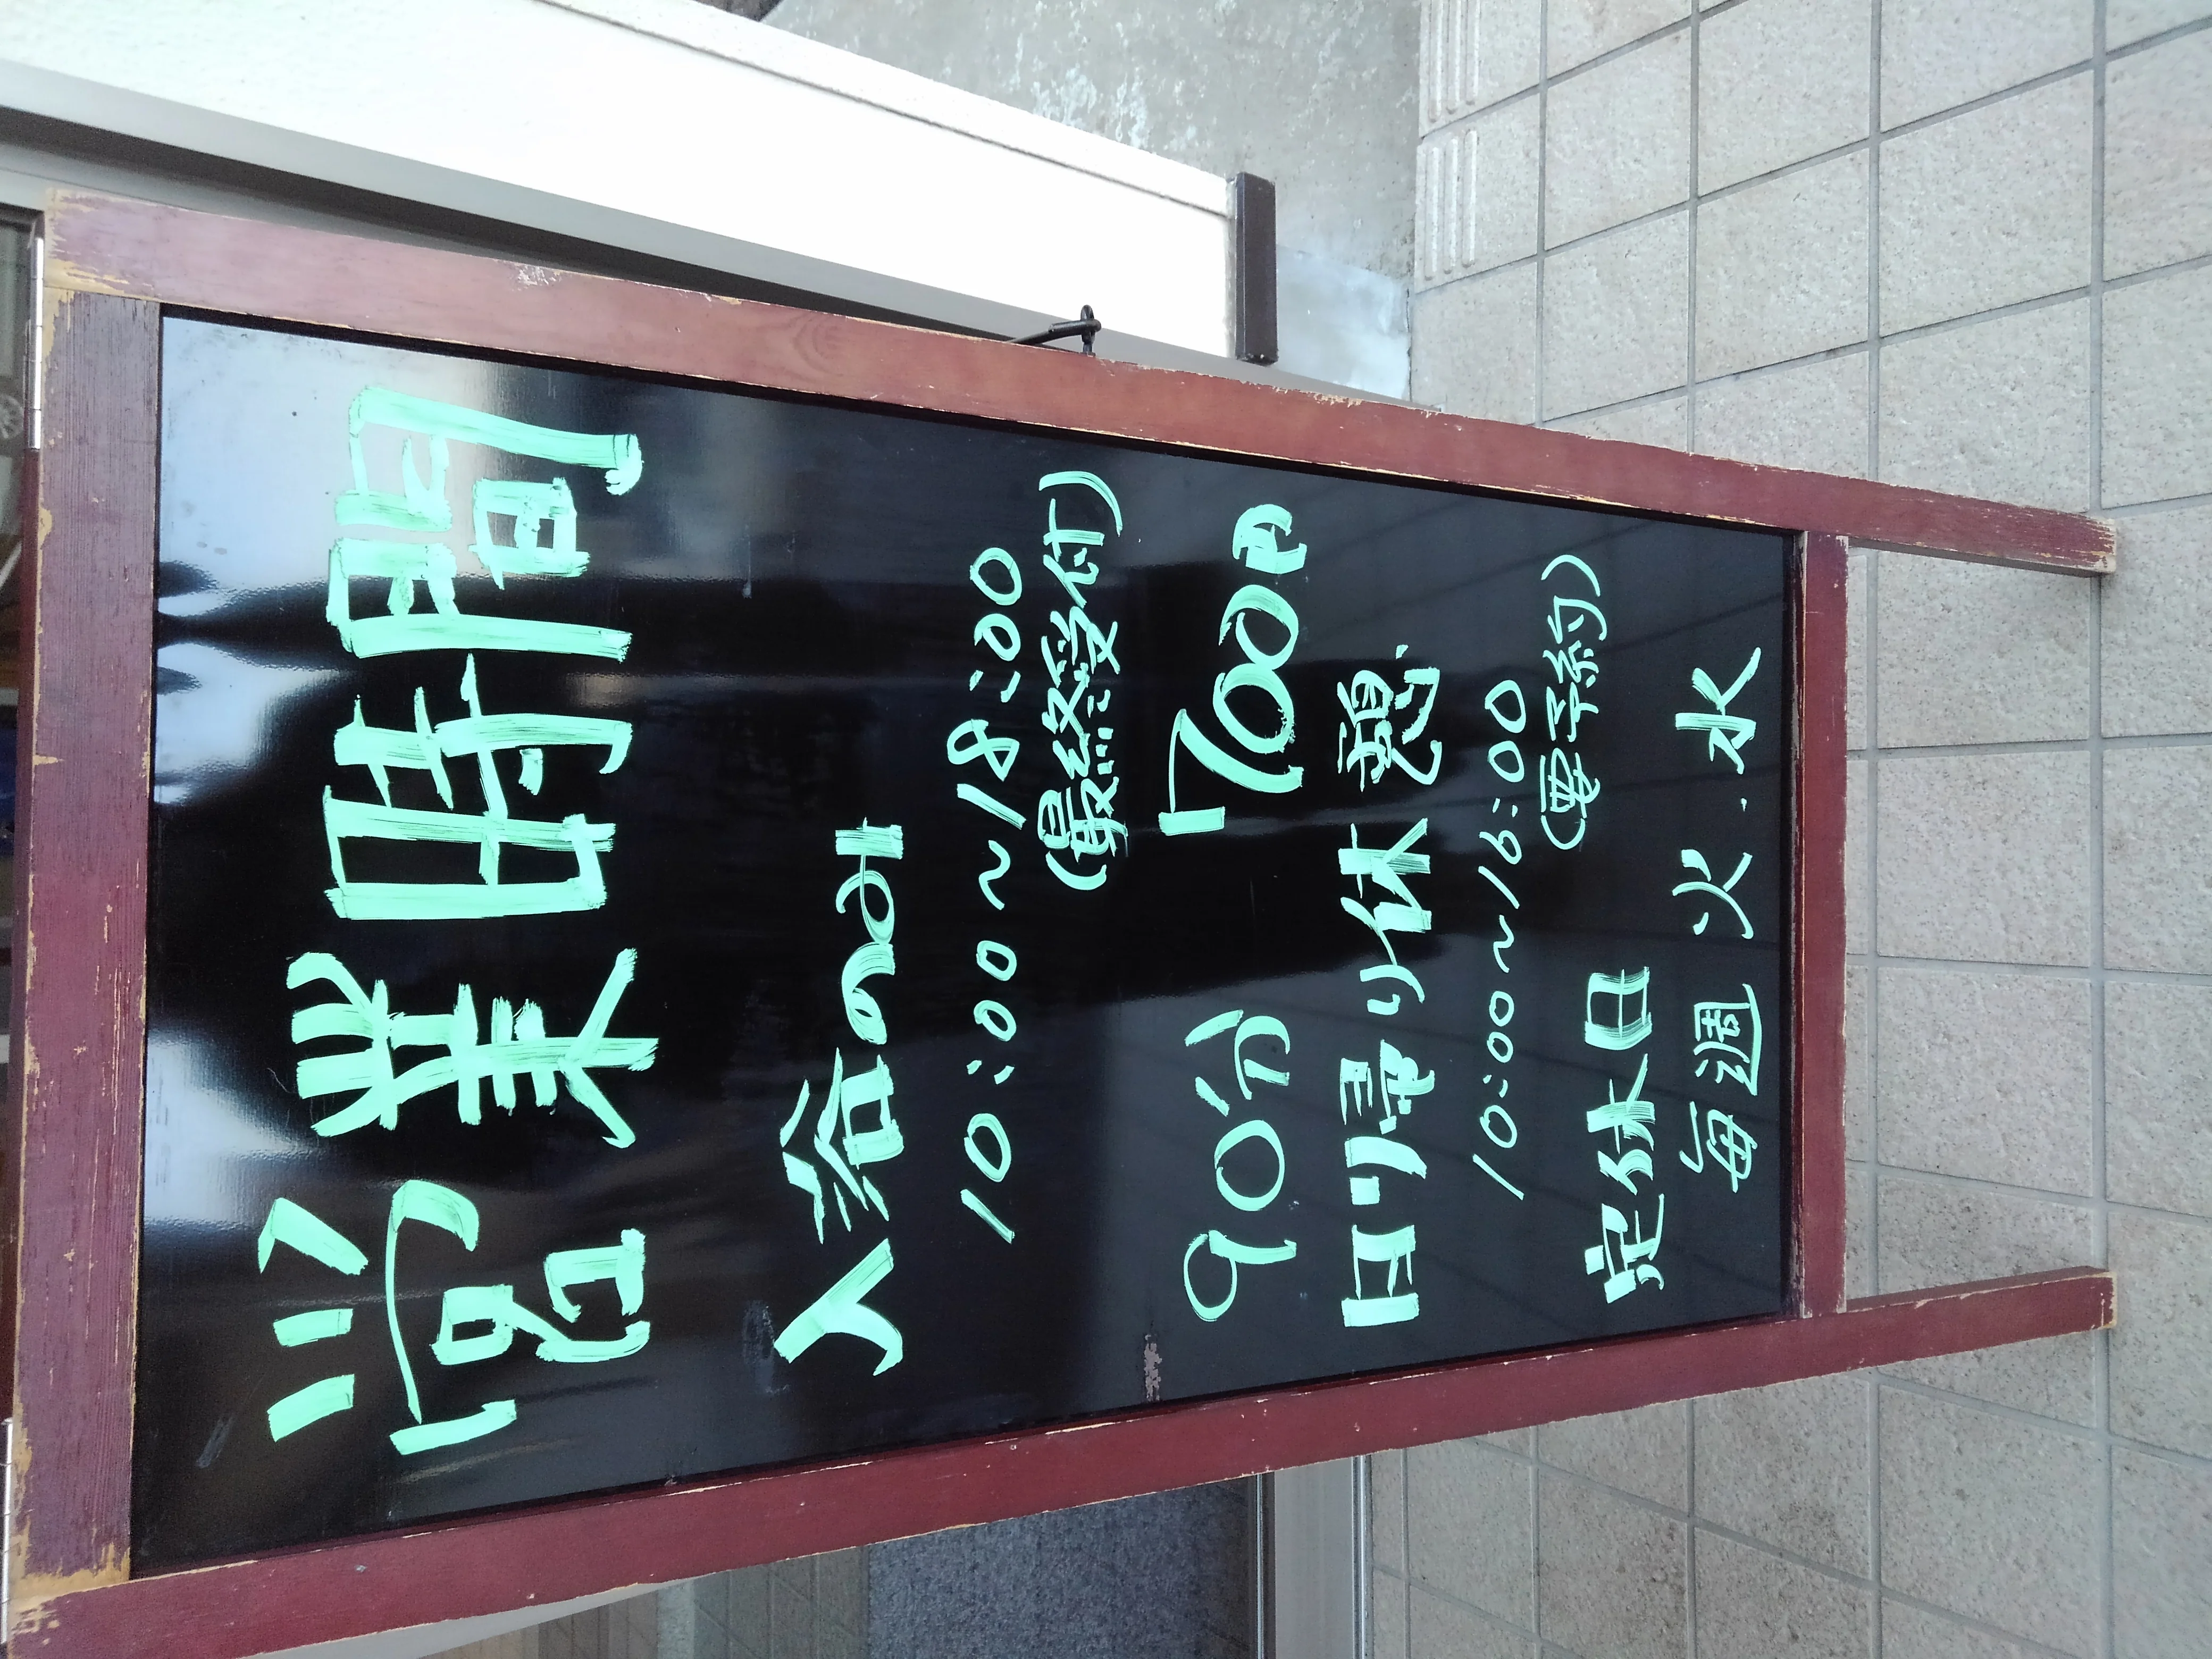 営業時間
入浴のみ
10:00~18:00
(最終受付)
90分 1700円
日帰り休憩
10:00~16:00
(要予約)
定休日
毎週 火.水